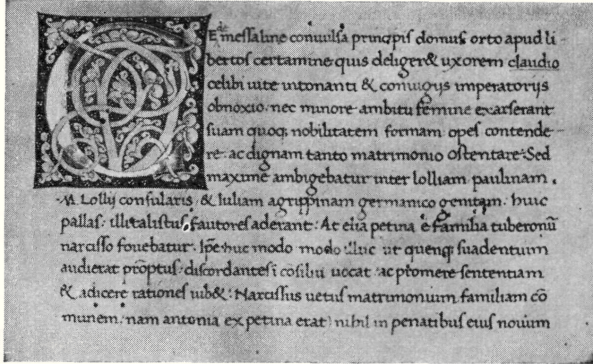 CEde messaline conuulsa principis domus orto apud li-
bertos certamine quis deliger& uxorem claudio
celibi uite intonanti & coniugijs imperatorijs
obnoxio. nec minore ambitu femine exarserant
suam quoq; nobilitatem formam opes contende-
re. ac dignam tanto matrimonio ostentare. Sed
maxime ambigebatur inter lolliam paulinam.
M. Lollij consularis & Iuliam agrippinam germanico genitam. huic
pallas. illi calistus fautores aderant. At elia petina e familia tuberonū
narcisso fouebatur. Ipse huc modo modo illuc ut quenq; suadentium
audierat prōptus. discordantes i cōsiliū uocat. ac promere sententiam
& adicere rationes iub&. Narcissus uetus matrimonium. familiam cō
munem. nam antonia ex petina erat. nihil in penatibus eius nouium